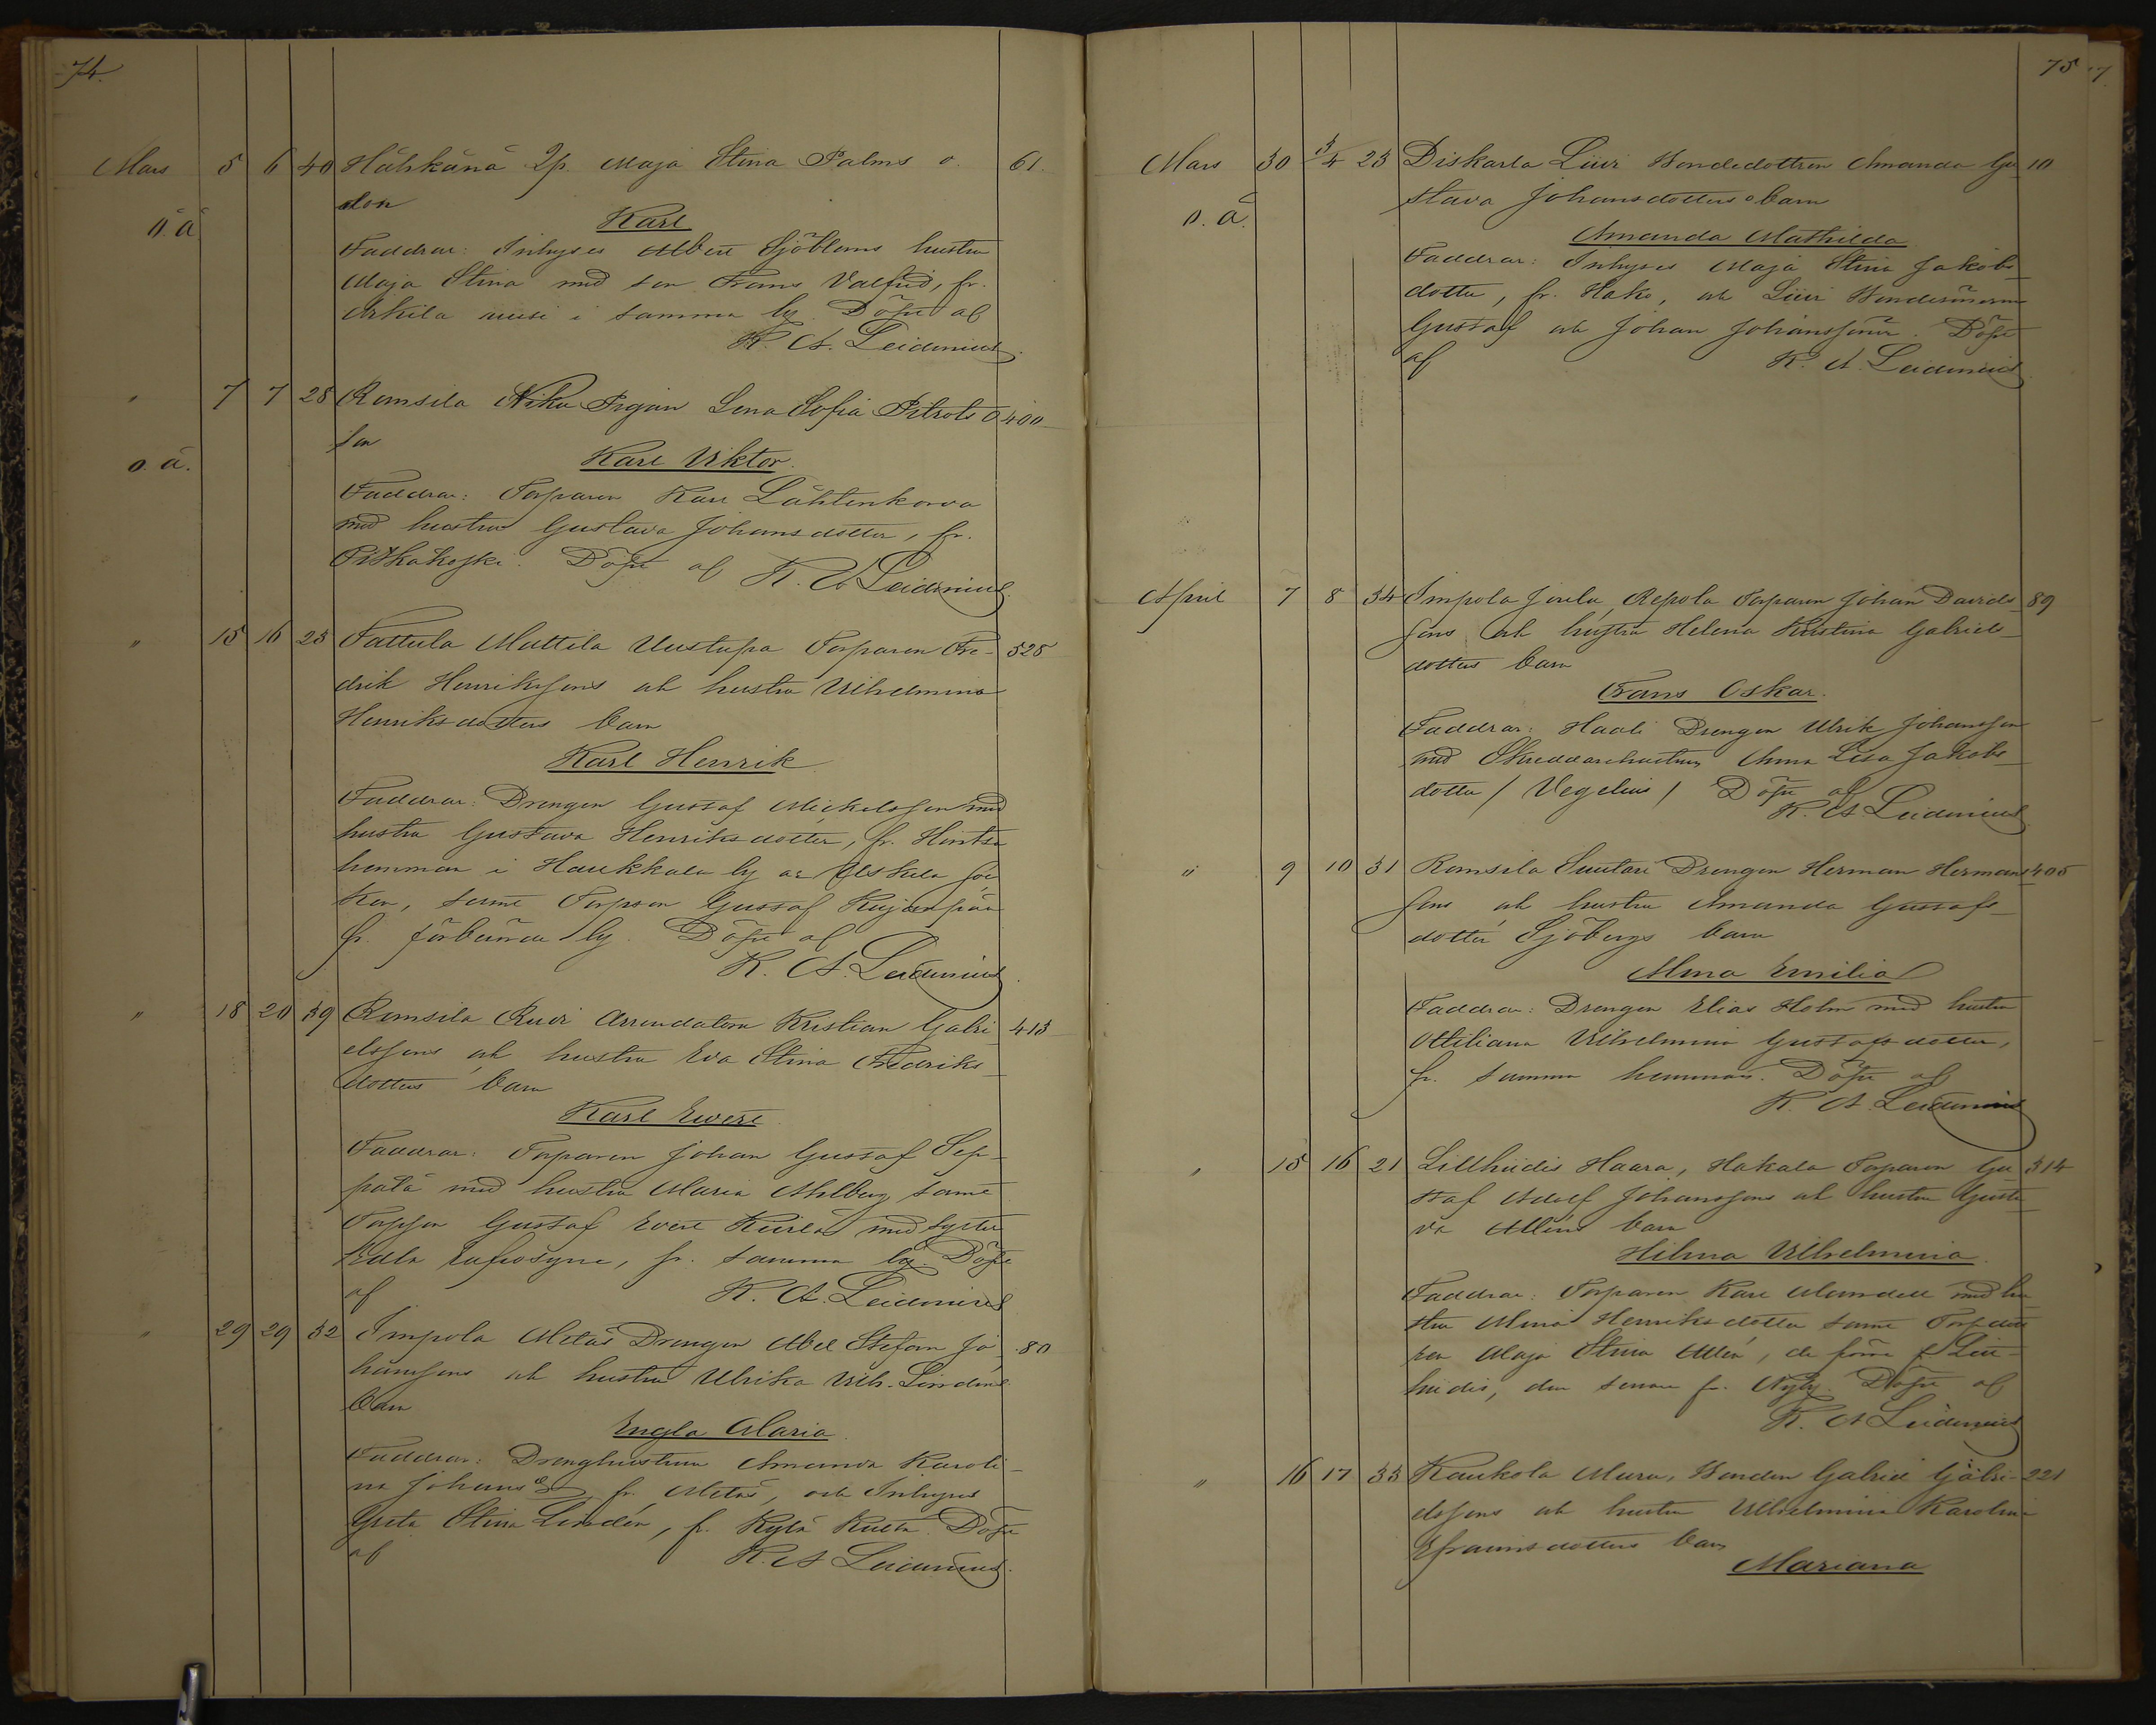 74.
Mars 5 6 40 Hähkänä Ip. Maja Stina Palms o. 61.
son
o.ä. Karl
Faddrar: Inhyses Albert Sjöbloms hustru
Maja Stina med son Frans Valfrid, fr.
Arkila i samma by. Döpt af
K. A. Leidenius.
" 7 7 28 Remsila Niku Pigan Lena Sofia o 400
son
o.ä. Karl Viktor.
Faddrar: Torparen Karl Lähteenkorva
med hustru Gustava Johansdotter, fr.
Pitkäkoski. Döpt af K. A. Leidenius.
" 15 16 23 Tattula Mattila Uustupa Torparen Fre- 525
drik Henrikssons och hustru Vilhelmina
Henriksdotters barn
Karl Henrik
Faddrar: Drengen Gustaf Mickelsson med
hustru Gustava Henriksdotter, fr. Hintsa
hemman i Haukkala by af soc
ken, samt Torpson Gustaf Kujanpää
fr. förberörde by. Döpt af
K. A. Leidenius.
" 18 20 39 Remsila Ruvi Arrendatorn Kristian Gabri 413
elssons och hustru Eva Stina Fredriks-
dotters barn
Karl Evert
Faddrar: Torparen Johan Gustaf Sep-
pälä med hustru Maria Ahlberg samt
Torpson Gustaf Evert Kiirlä med syster
Edla Eufrosyne, fr. samma by. Döpt
af K. A. Leidenius
" 29 29 32 Impola Aletas Drengen Abel Stefan Jo- 80
hanssons och hustru Ulrika Vilh. Lindens
barn
Engla Maria.
Faddrar: Drenghustrun Amanda Karoli-
na Johansdr fr. Aletas, och Inhyses
Greta Stina Lindén, fr. Kylä Kulla. Döpt
af K. A. Leidenius.
75
7.
Mars 30 3/4 23 Diskarla Liuvi Bondedottren Amanda Gu 10
stava Johansdotters o barn
o.ä. Amanda Mathilda
Faddrar: Inhyses Maja Stina Jakobs-
dotter, fr. Hako, och Liuvi Bondesönerna
Gustaf och Johan Johanssöner. Döpt
af K. A. Leidenius
April 7 8 34 Impola Joula, Repola Torparen Johan Davids- 89
sons och hustru Helena Kristina Gabriels-
dotters barn
Frans Oskar.
Faddrar: Haali Drengen Ulrik Johansson
med Skreddarehustrun Anna Lisa Jakobs-
dotter / Vegelius / Döpt af
K. A. Leidenius
" 9 10 31 Remsila Suutari Drengen Herman Hermans- 405
sons och hustru Amanda Gustafs-
dotter Sjöbergs barn
Alma Emilia
Faddrar: Drengen Elias Holm med hustru
Ottiliana Vilhelmina Gustafsdotter,
fr. samma hemman. Döpt af
K. A. Leidenius
" 15 16 21 Lillhiidis Haara, Hakala Torparen Gu 314
staf Adolf Johanssons och hustru Gusta
va Alléns barn
Hilma Vilhelmina.
Faddrar: Torparen Karl med hu
stru Alma Henriksdotter samt
Maja Stina Allén, de förre fr. Lill-
hiidis, den senare fr. Nyby. Döpt af
K. A. Leidenius
" 16 17 33 Kaukola Mura, Bonden Gabriel Gabri- 221
elssons och hustru Vilhelmina Karolina
Efraimsdotters barn
Mariana